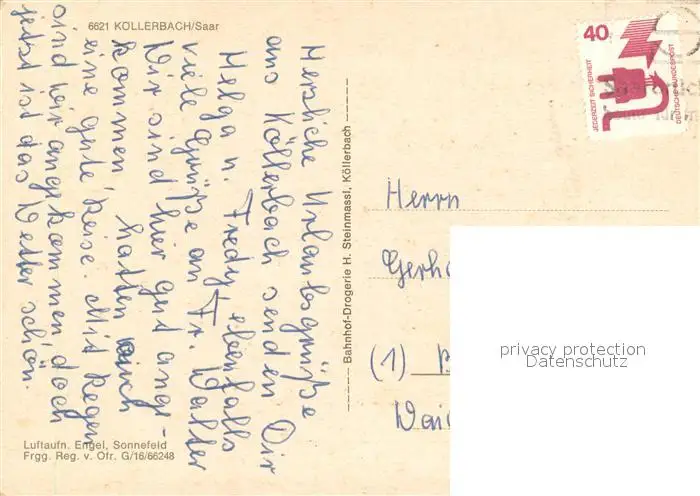 6621 KÖLLERBACH/Saar
Herzliche Urlaubsgrüße
aus Köllerbach senden Dir
Helga u. Fredy ebenfalls
viele Grüße an Fr. Walter
Wir sind hier gut ange-
kommen hatten auch
eine gute Reise. Mit Regen
sind wir angekommen doch
jetzt ist das Wetter schön.
Luftaufn. Engel, Sonnefeld
Frgg. Reg. v. Ofr. G/16/66248
Bahnhof-Drogerie H. Steinmassl, Köllerbach
40
JEDERZEIT SICHERHEIT
DEUTSCHE BUNDESPOST
Herrn
Gerha
(1)
Wai
privacy protection
Datenschutz